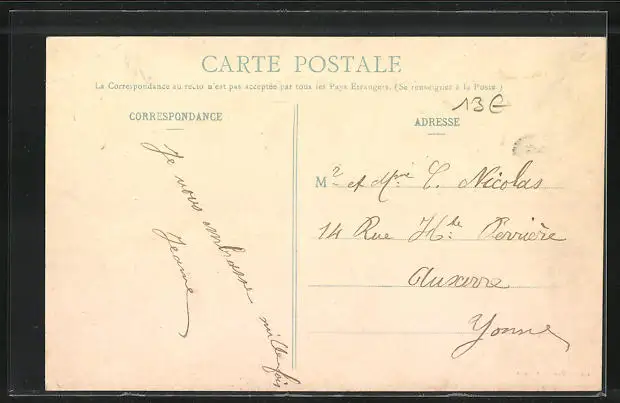 CARTE POSTALE
La Correspondance au recto n'est pas acceptée par tous les Pays Etrangers. (Se renseigner à la Poste.)
13€
CORRESPONDANCE
Je vous embrasse mille fois
Jeanne
ADRESSE
Mr et Mme C. Nicolas
14 Rue Hte Perrière
Auxerre
Yonne